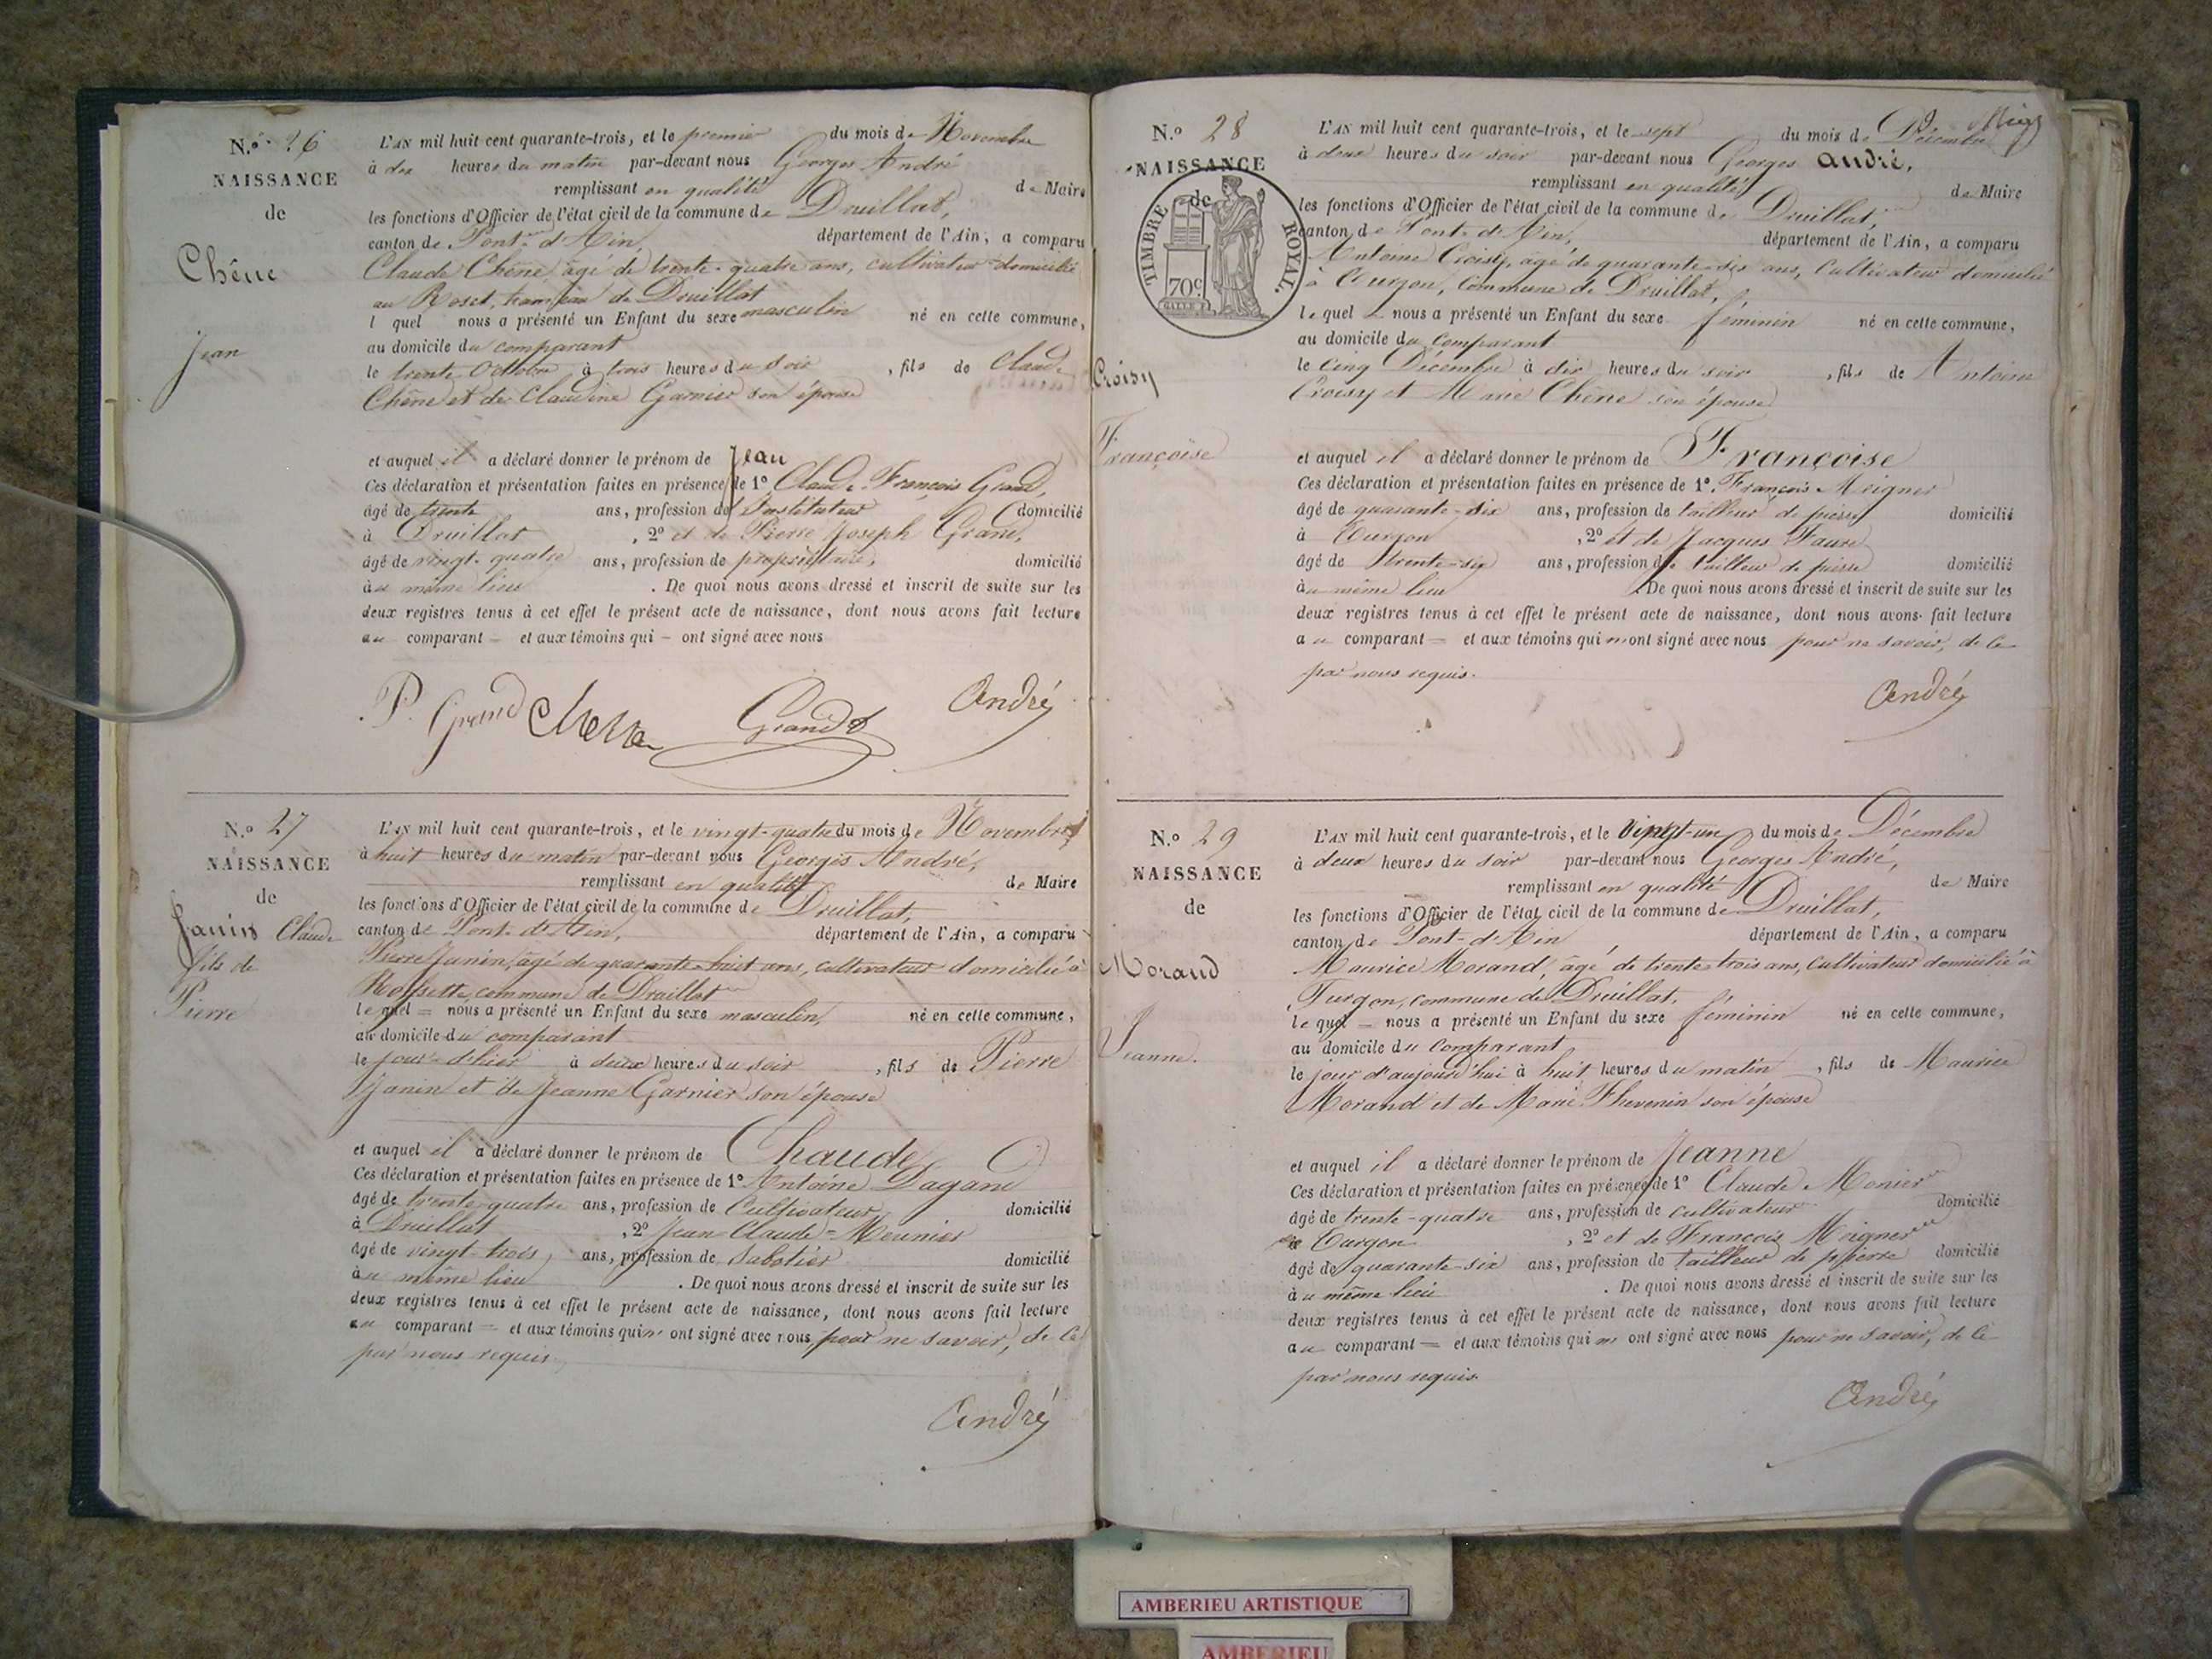 N.º 26
NAISSANCE
de
Chêne
Jean
L'AN mil huit cent quarante-trois, et le premier du mois de Novembre
à dix heures du matin par-devant nous Georges André
remplissant en qualité de Maire
les fonctions d'Officier de l'état civil de la commune de Druillat,
canton de Pont-d'Ain, département de l'Ain, a comparu
Claude Chêne, âgé de trente-quatre ans, cultivateur domicilié
au Roset, hameau de Druillat
l quel nous a présenté un Enfant du sexe masculin né en cette commune,
au domicile du comparant
le trente Octobre à trois heures du soir, fils de Claude
Chêne et de Claudine Garnier son épouse
et auquel il a déclaré donner le prénom de Jean
Ces déclaration et présentation faites en présence de 1º Claude François Grand,
âgé de trente ans, profession de Instituteur domicilié
à Druillat, 2º et de Pierre Joseph Grand,
âgé de vingt-quatre ans, profession de propriétaire, domicilié
au même lieu. De quoi nous avons dressé et inscrit de suite sur les
deux registres tenus à cet effet le présent acte de naissance, dont nous avons fait lecture
au comparant – et aux témoins qui – ont signé avec nous
P. Grand Chene Grand André
N.º 27
NAISSANCE
de
Janin Claude
fils de
Pierre
L'AN mil huit cent quarante-trois, et le vingt-quatre du mois de Novembre
à huit heures du matin par-devant nous Georges André,
remplissant en qualité de Maire
les fonctions d'Officier de l'état civil de la commune de Druillat,
canton de Pont-d'Ain, département de l'Ain, a comparu
Pierre Janin, âgé de quarante-huit ans, cultivateur domicilié à
Rossette, commune de Druillat
lequel = nous a présenté un Enfant du sexe masculin, né en cette commune,
au domicile du comparant
le jour d'hier à deux heures du soir, fils de Pierre
Janin et de Jeanne Garnier son épouse
et auquel il a déclaré donner le prénom de Chaude
Ces déclaration et présentation faites en présence de 1º Antoine Pagand
âgé de trente-quatre ans, profession de Cultivateur domicilié
à Druillat, 2º Jean-Claude-Meunier
âgé de vingt-trois, ans, profession de Sabotier domicilié
au même lieu. De quoi nous avons dressé et inscrit de suite sur les
deux registres tenus à cet effet le présent acte de naissance, dont nous avons fait lecture
au comparant = et aux témoins qui n' ont signé avec nous pour ne savoir, de ce
par nous requis.
André
N.º 28
NAISSANCE
de
TIMBRE ROYAL.
70c
Croisy
Françoise
L'AN mil huit cent quarante-trois, et le sept du mois de Décembre
à deux heures du soir par-devant nous Georges André,
remplissant en qualité de Maire
les fonctions d'Officier de l'état civil de la commune de Druillat,
canton de Pont-d'Ain, département de l'Ain, a comparu
Antoine Croisy, âgé de quarante-six ans, Cultivateur domicilié
à Turgon, Commune de Druillat,
lequel = nous a présenté un Enfant du sexe féminin né en cette commune,
au domicile du comparant
le Cinq Décembre à dix heures du soir, fils de Antoine
Croisy et Marie Chêne son épouse
et auquel il a déclaré donner le prénom de Françoise
Ces déclaration et présentation faites en présence de 1º. François Moigner
âgé de quarante-six ans, profession de tailleur de pierre domicilié
à Turgon, 2º et de Jacques Faure
âgé de trente-six ans, profession de tailleur de pierre domicilié
au même lieu. De quoi nous avons dressé et inscrit de suite sur les
deux registres tenus à cet effet le présent acte de naissance, dont nous avons fait lecture
au comparant = et aux témoins qui n'ont signé avec nous pour ne savoir, de ce
par nous requis.
André
N.º 29
NAISSANCE
de
Morand
Jeanne.
L'AN mil huit cent quarante-trois, et le Vingt-un du mois de Décembre
à deux heures du soir par-devant nous Georges André,
remplissant en qualité de Maire
les fonctions d'Officier de l'état civil de la commune de Druillat,
canton de Pont-d'Ain département de l'Ain, a comparu
Maurice Morand, âgé de trente trois ans, Cultivateur domicilié à
Turgon, commune de Druillat,
lequel = nous a présenté un Enfant du sexe féminin né en cette commune,
au domicile du Comparant
le jour d'aujourd'hui à huit heures du matin, fils de Maurice
Morand et de Marie Thevenin son épouse
et auquel il a déclaré donner le prénom de Jeanne
Ces déclaration et présentation faites en présence de 1º Claude Monier
âgé de trente-quatre ans, profession de cultivateur domicilié
à Turgon, 2º et de François Moigner
âgé de quarante-six ans, profession de tailleur de pierre domicilié
au même lieu. De quoi nous avons dressé et inscrit de suite sur les
deux registres tenus à cet effet le présent acte de naissance, dont nous avons fait lecture
au comparant = et aux témoins qui n' ont signé avec nous pour ne savoir, de ce
par nous requis.
André
AMBERIEU ARTISTIQUE
AMBERIEU